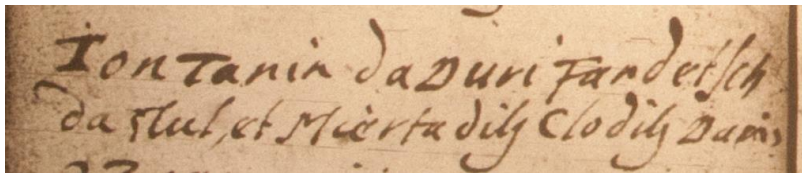 Jon Tanin da Duri Fandetsch
da Flul, et Mierta dilg Clo dilg Danis